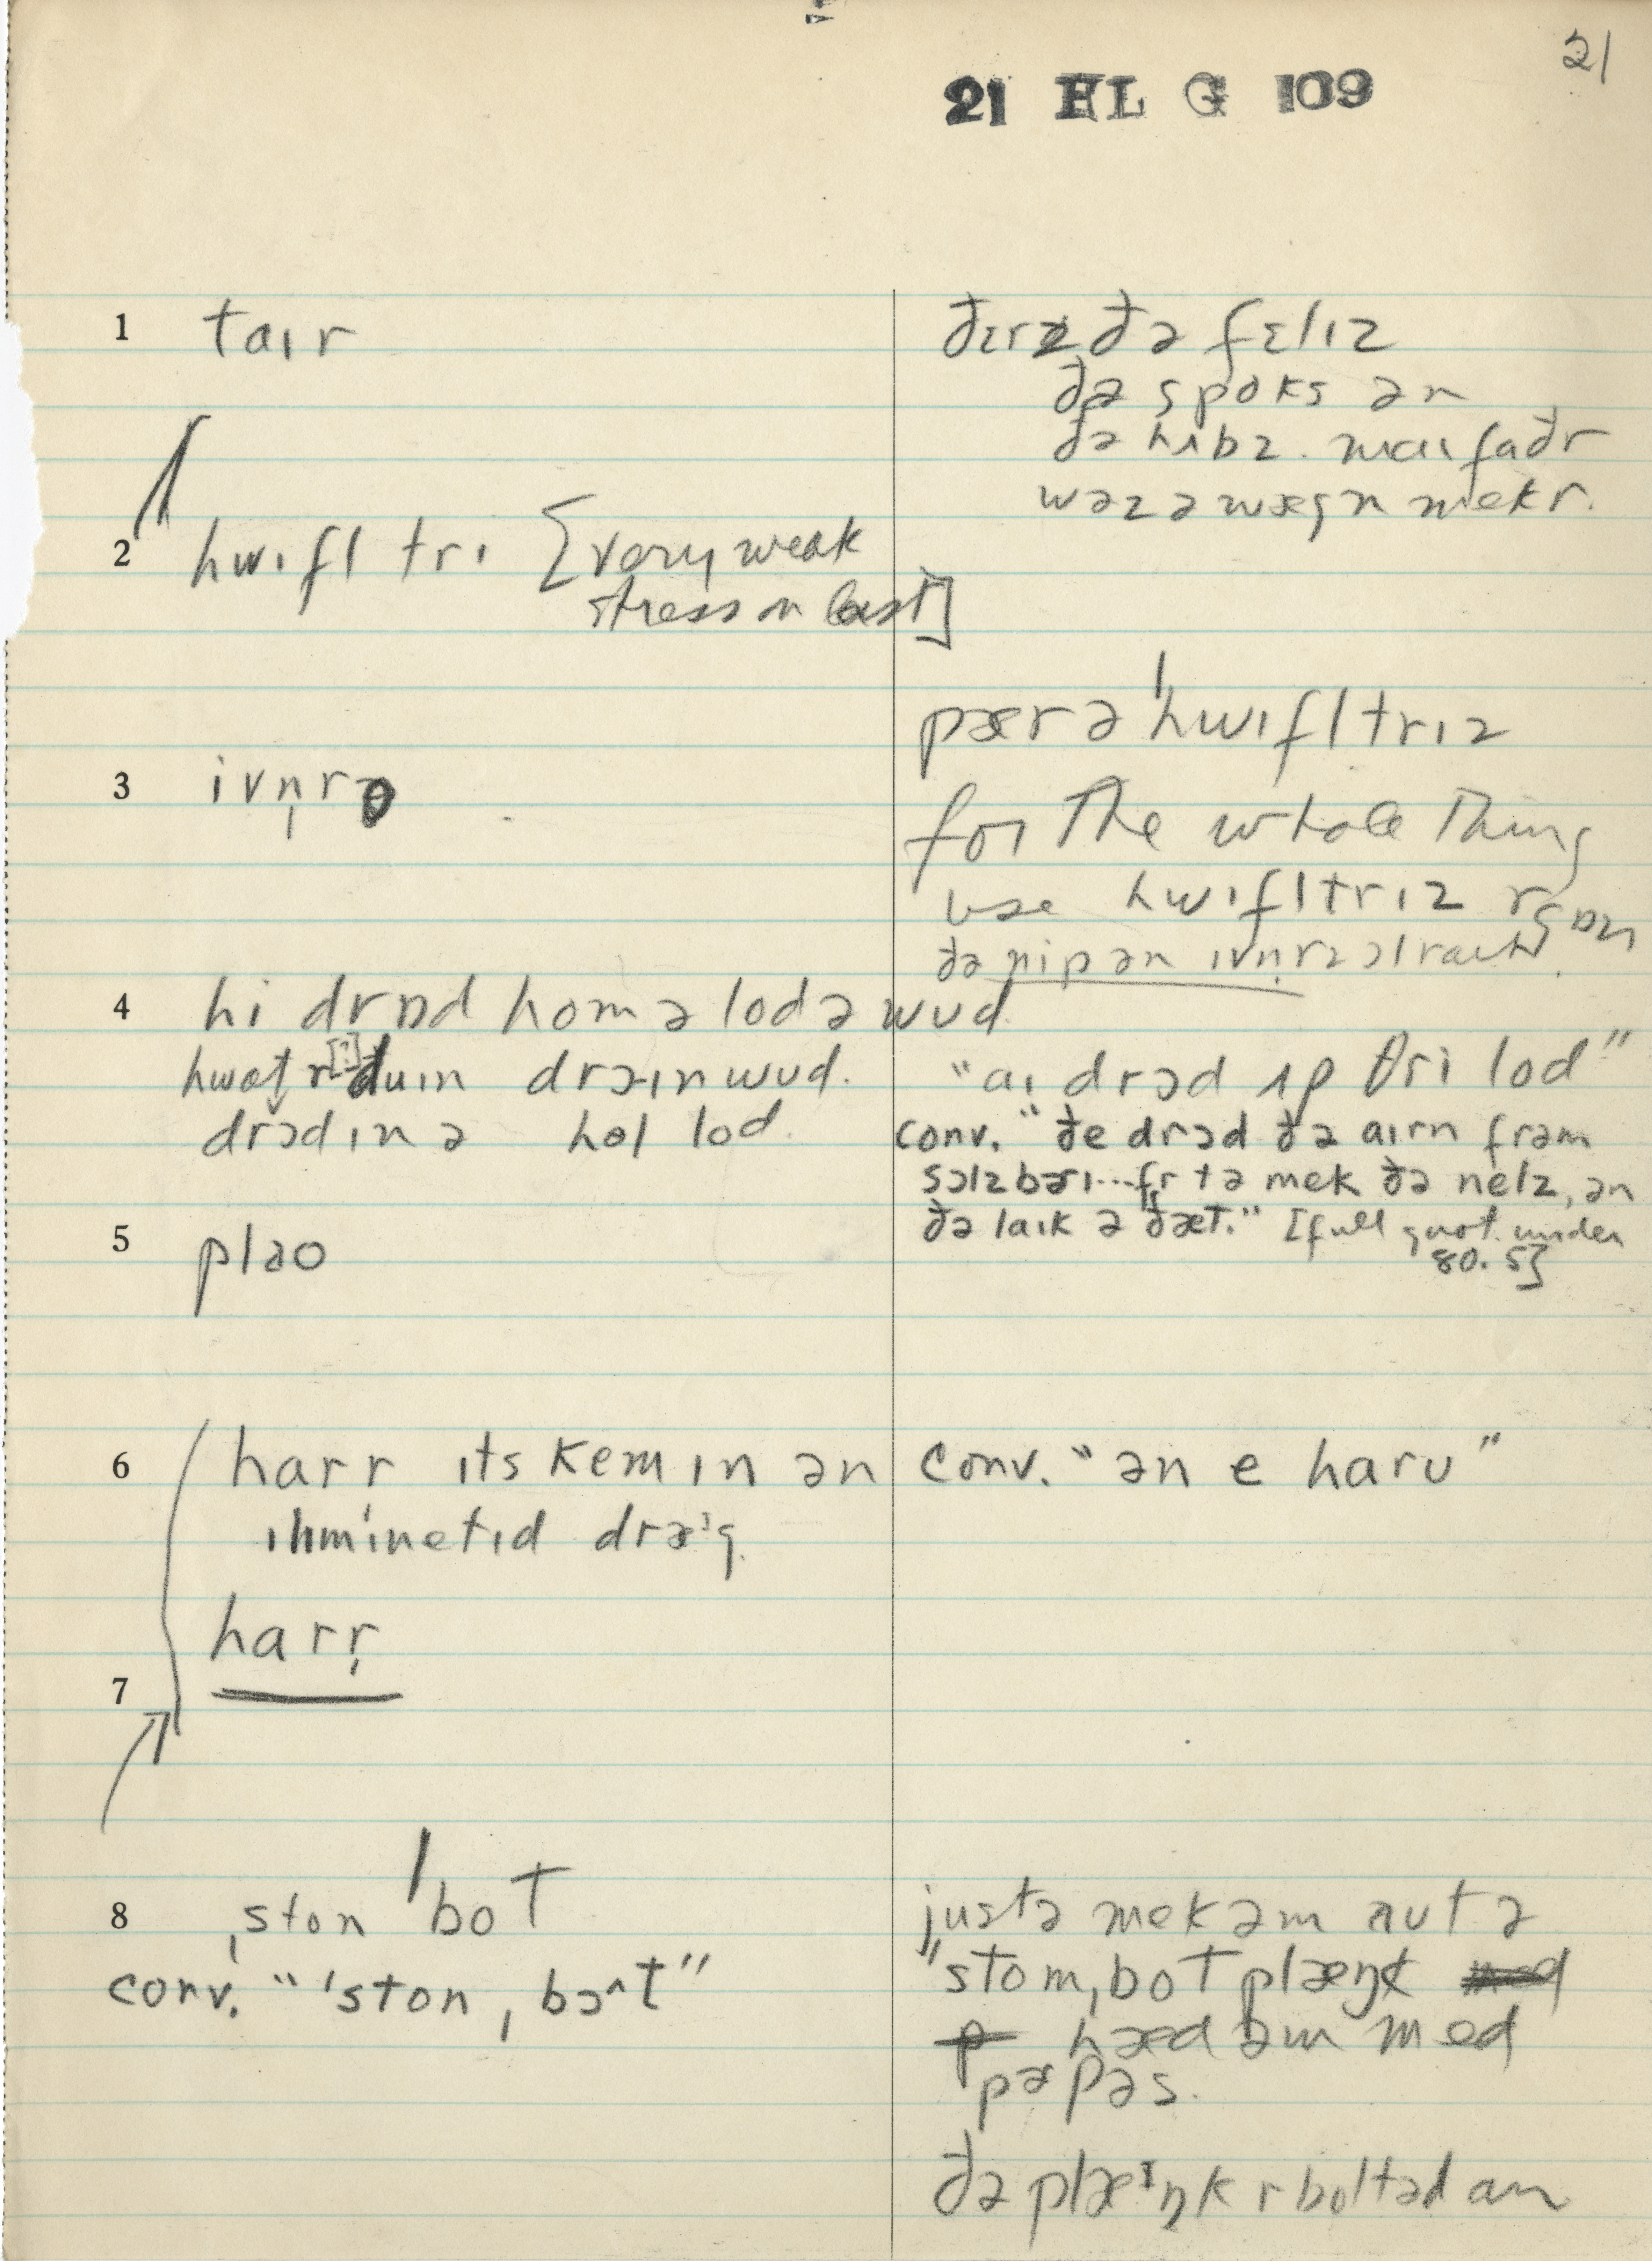 21
21 HL G 109
1 taɪr
ðɛrz ðə fɛlɪz
ðə spoks ən
ðə hʌbz. maɪ faðr
wəz ə wægn mekr.
2 hwɪfl tri [very weak
stress on last]
pær ə ˈhwɪfltrɪz
3 ivn̩rz
for the whole thing
use hwɪfltrɪz
ðə nip ən ivn̩rz ɔl raɪt
4 hi drɒd hom ə lod ə wud
hwət r [?] duɪn drɔ·ɪn wud.
drɔd ɪn ə hol lod.
"aɪ drɔd ʌp θri lod"
conv. "ðe drɔd ðə aɪrn frəm
sɔlzbərɪ...fr tə mek ðə nelz, ən
ðə laɪk ə ðæt." [full quot. under
80.5]
5 pləo
6 harr̩ ɪts kem ɪn ən
ɪlɪmɪnetɪd dræ·g.
conv. "ən e haru"
harr̩
7
8 ˌston ˈbot
conv. "ˈston ˌbɔ^t"
justə mek əm aut ə
ˈstomˌbot plæŋk
hæd əm med
pɚpəs.
ðə plæɪŋk r boltəd an